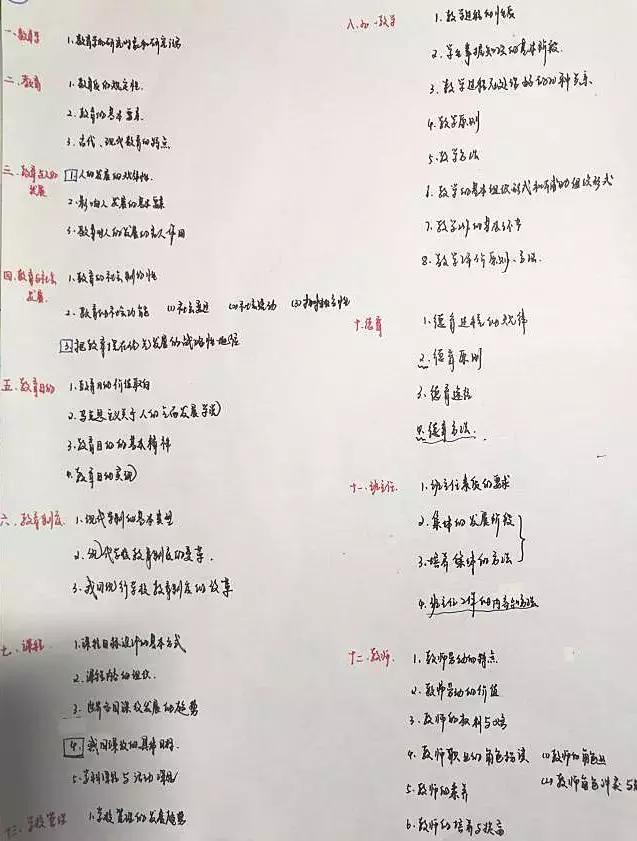 一、教育学 1.教育学的研究对象和研究
二、教育 1.教育质的规定性.
2.教育的基本要素.
3.古代、现代教育的特点
三、教育与人的发展 1.人的发展的规律性.
2.影响人发展的基本因素
3.教育对人的发展的 作用
四、教育与社会发展. 1.教育的社会制约性
2.教育的社会功能 (1)社会变迁 (2)社会流动 (3)相对独立性
3.把教育摆在优先发展的战略性地位
五、教育目的 1.教育目的价值取向
2.马克思主义关于人的全面发展学说
3.教育目的的基本精神
4.教育目的实现
六、教育制度 1.现代学制的基本类型
2.现代学校教育制度的变革.
3.我国现行学校教育制度的改革
七、课程 1.课程目标设计的基本方式
2.课程内容的组织.
3.世界各国课改发展的趋势
4.我国课改的具体目标.
5.学科课程与活动课程
十三、学校管理 1.学校管理的发展趋势
八、九、教学 1.教学过程的性质
2.学生掌握知识的基本阶段.
3.教学过程应处理的 种关系.
4.教学原则
5.教学方法
6.教学的基本组织形式和辅助组织形式
7.教学工作的 环节
8.教学评价原则、方法.
十、德育 1.德育过程的规律
2.德育原则
3.德育途径
4.德育方法.
十一、班主任. 1.班主任素质的要求
2.集体的发展阶段
3.培养集体的方法
4.班主任工作的内容和方法
十二、教师. 1.教师劳动的特点
2.教师劳动的价值
3.教师的权利与义务
4.教师职业的角色 (1)教师的角色
(2)教师角色冲突与
5.教师的素养
6.教师的培养与提高